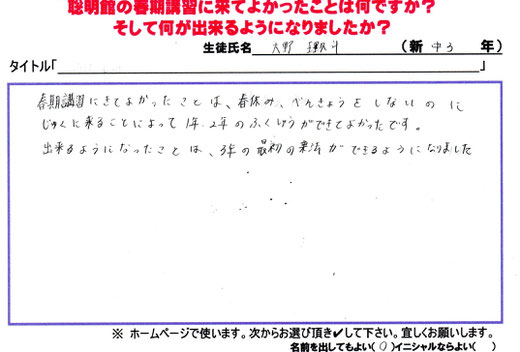 聡明館の春期講習に来てよかったことは何ですか？
そして何が出来るようになりましたか？
生徒氏名 大野 （新 中3 年）
タイトル「 」
春期講習にきてよかったことは、春休み、べんきょうをしないのに
じゅくに来ることによって1年、2年のふくしゅうができてよかったです。
出来るようになったことは、3年の最初の乗法ができるようになりました
※ ホームページで使います。次からお選び頂き✔して下さい。宜しくお願いします。
名前を出してもよい（ ○ ）イニシャルならよい（ ）